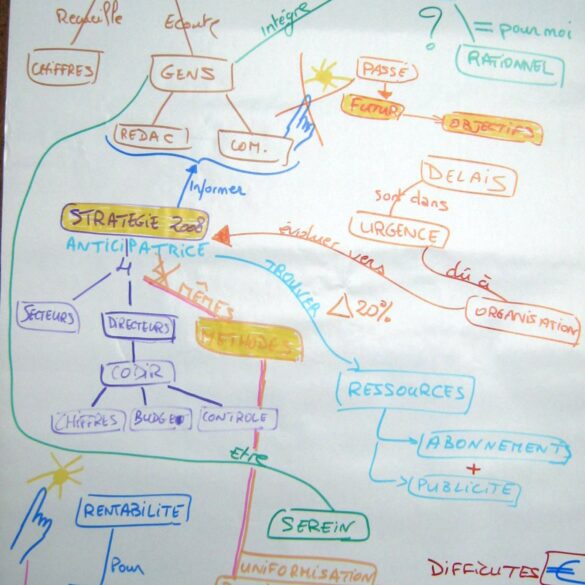 Recueille
Ecoute
Intègre
? = pour moi
RATIONNEL
CHIFFRES
GENS
PASSÉ
FUTUR
OBJECTIFS
REDAC
COM.
Informer
DELAIS
sont dans
URGENCE
STRATEGIE 2008
ANTICIPATRICE
évoluer vers
dû à
ORGANISATION
TROUVER
20%
4
MÊMES
METHODES
SECTEURS
DIRECTEURS
CODIR
CHIFFRES
BUDGET
CONTROLE
RESSOURCES
ABONNEMENTS
+
PUBLICITE
Etre
SEREIN
RENTABILITE
Pour
UNIFORMISATION
DIFFICUTES €